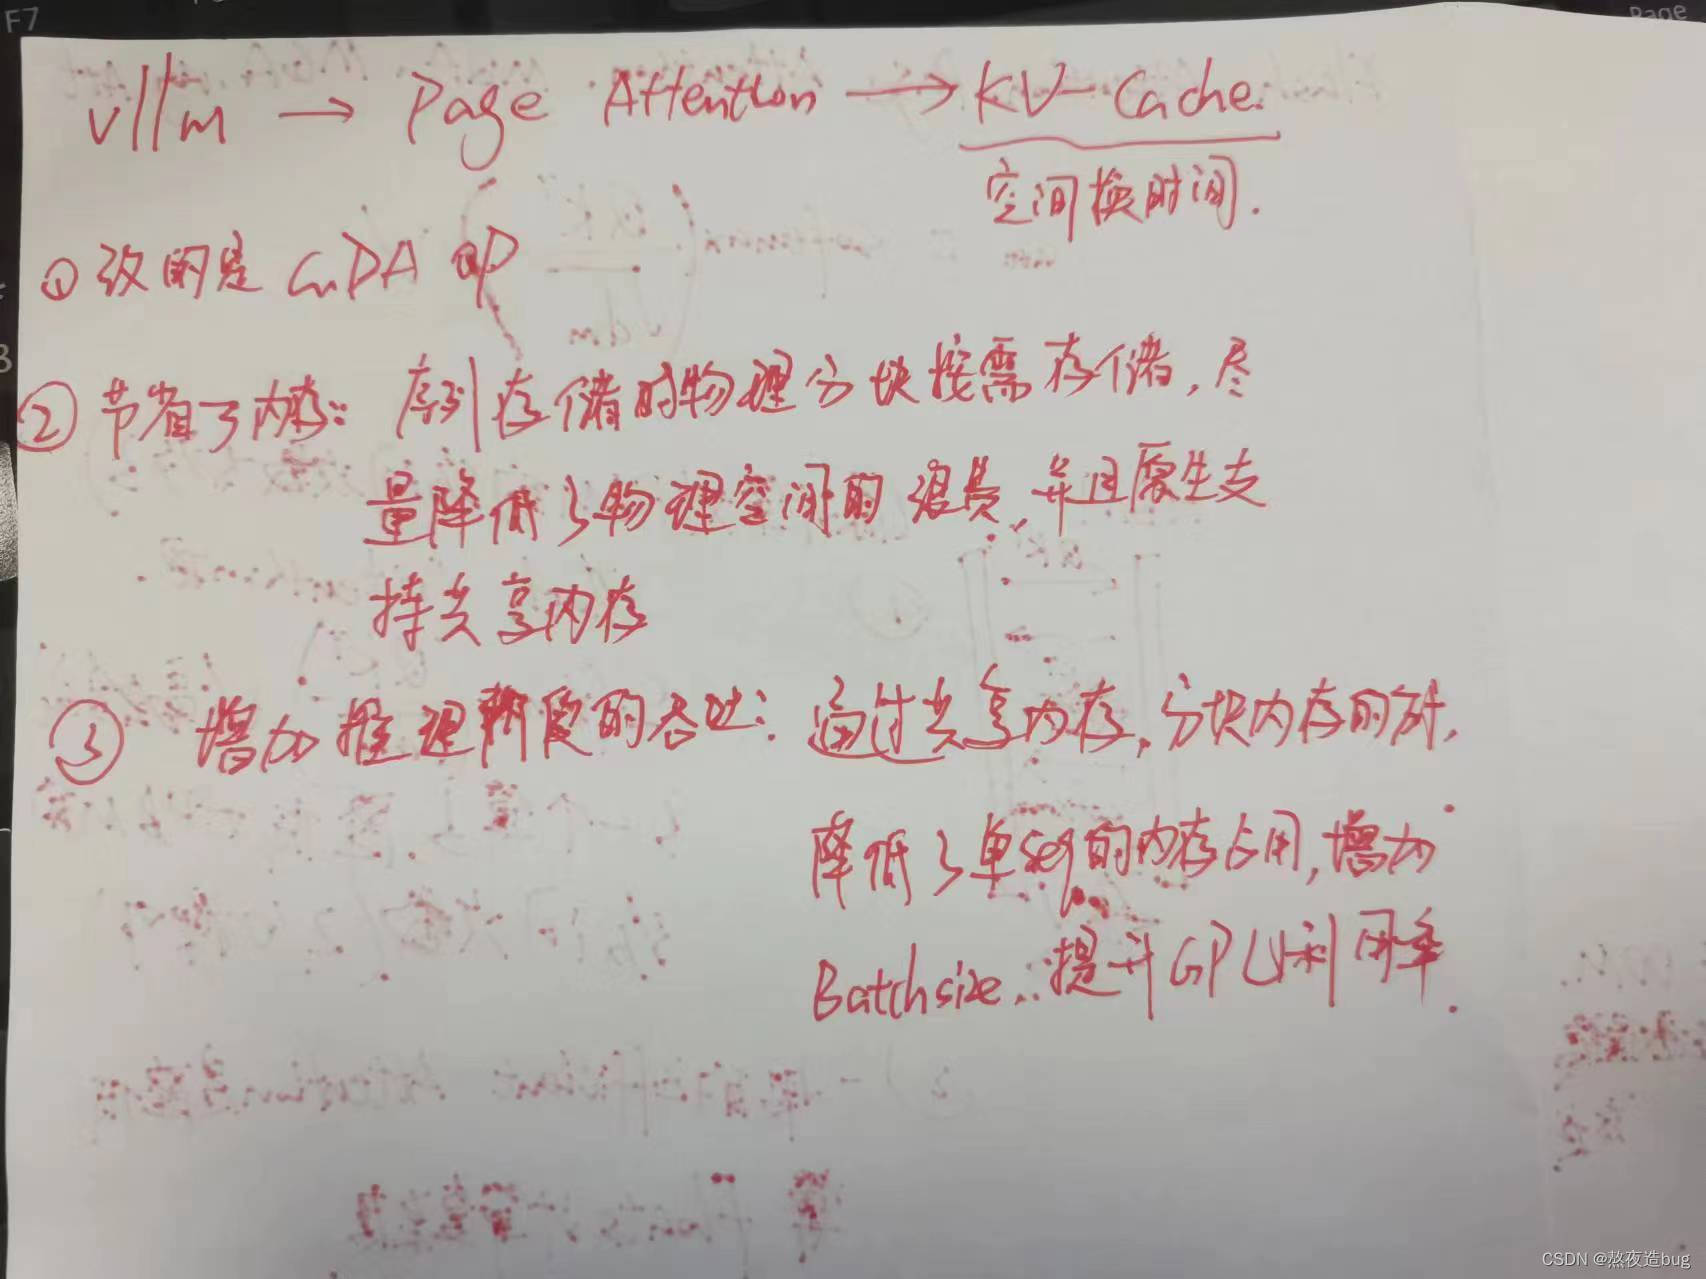 F7
Page
vllm → Page Attention → KV-Cache.
空间换时间.
① 改的是 CUDA OP
② 节省了内存: 序列存储时物理分块按需存储, 尽
量降低了物理空间的浪费, 并且原生支
持共享内存
③ 增加推理阶段的吞吐: 通过共享内存, 分块内存的
降低了单seq的内存占用, 增加
Batchsize. 提升GPU利用率.
CSDN @熬夜造bug